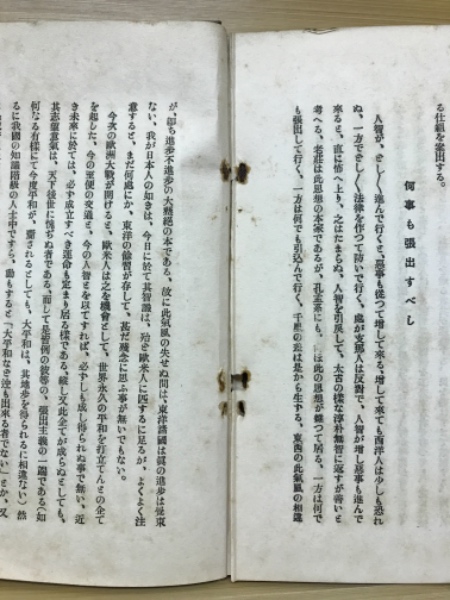 る仕組を案出する。
何事も張出すべし
人智が、ぐん〳〵進んで行くと、惡事も從つて增して來る、增して來ても西洋人は少しも恐れ
ぬ、一方でぐん〳〵法律を作つて防いで行く、處が支那人は反對で、人智が增し惡事も進んで
來ると、直に怖へ上り、之はたまらぬ、人智を引戾して、太古の樣な淳朴無智に返すが善いと
考へる、老莊は此思想の本家であるが、孔孟系にも、は此の思想が傾つて居る、一方は何で
も張出して行く、一方は何でも引込んで行く、千里の差は是から生ずる、東西の此氣風の相違
が、卽ち進步不進步の大な根の本である、故に此氣風の失せぬ間は、東洋諸國は眞の進步は覺束
ない、我が日本人の如きは、今日に於て其智識は、殆ど歐米人に匹するに足るが、よく〳〵注
意すると、まだ何處にか、東洋の餘習が存して、甚だ殘念に思ふ事が無いでもない。
今次の歐洲大戰が開けると、歐米人は之を機會として、世界永久の平和を打立てんとの企て
を起した、今の至便の交通と、今の人智とを以てすれば、必ずしも成し得られぬ事で無い、近
き未來に於ては、必ず成立すべき運命も定まり居る樣である、縱し又此企てが成らぬとしても、
其志望意氣は、天下後世に愧ぢぬ者である、而して是皆例の彼等の、張出主義の一端である（如
何なる有樣にて今度平和が、齎されるとしても、大平和は、其地步を得られるに相違ない）然
るに我國の知識階級の人士中ですら、動もすると「大平和など迚も出來る者でない」とか、又